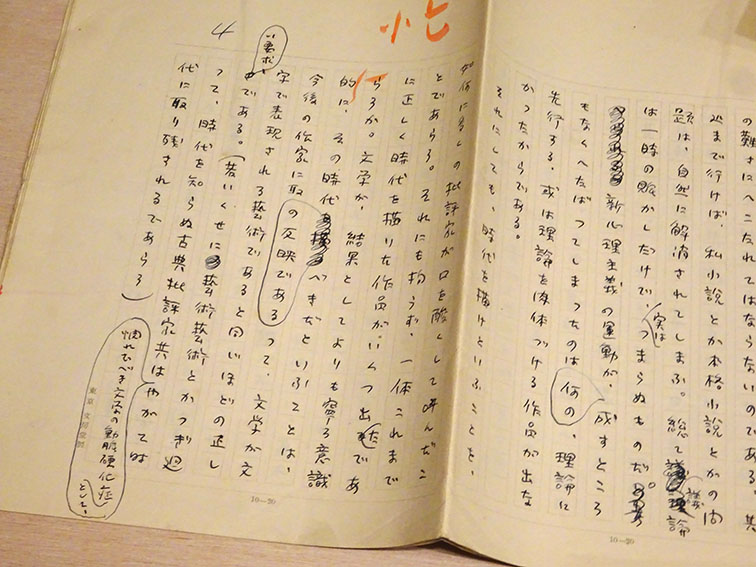 の難さにへこたれてはならないのである。其
処まで行けば、私小説とか本格小説とかの問
題は、自然に解消されてしまふ。総て議論
は一時の賑かしだけで、実はつまらぬものだ。
新心理主義の運動が、成すところ
もなくへたばつてしまつたのは何の、理論に
先行する、或は理論を体づける作品が出な
かつたからである。
それにしても、時代を描けといふことを、
如何に多くの批評家が口を酸くして呼んだこ
とであらう。それにも拘らず、一体これまで
に正しく時代を描いた作品が、いくつ出たであ
らうか。文学が、結果としてよりも寧ろ意識
的に、その時代の反映であるべきだといふことは、
今後の作家に取つて、文学が文
字で表現される藝術であると同じほどの正し
い要求である。(若いくせに藝術藝術とかつぎ廻
つて、時代を知らぬ古典批評家共はやがて時
代に取り残されるであらう)
怖れひべき文学の動脈硬化症として、
4
10—20
10—20